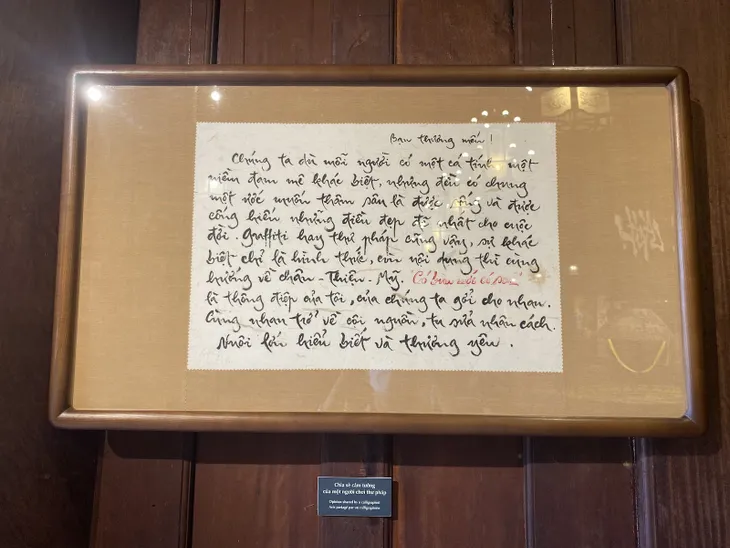 Bạn thương mến !
Chúng ta dù mỗi người có một cá tính một
niềm đam mê khác biệt, nhưng đều có chung
một ước muốn thâm sâu là được sống và được
cống hiến những điều đẹp đẽ nhất cho cuộc
đời. Graffiti hay thư pháp cũng vậy, sự khác
biệt chỉ là hình thức, còn nội dung thì cùng
hướng về chân - Thiện - Mỹ. Có bùn mới có sen
là thông điệp của tôi, của chúng ta gởi cho nhau.
Cùng nhau trở về cội nguồn, tu sửa nhân cách.
Nuôi lớn hiểu biết và thương yêu .
Chia sẻ cảm tưởng
của một người chơi thư pháp
Opinion shared by a calligraphist